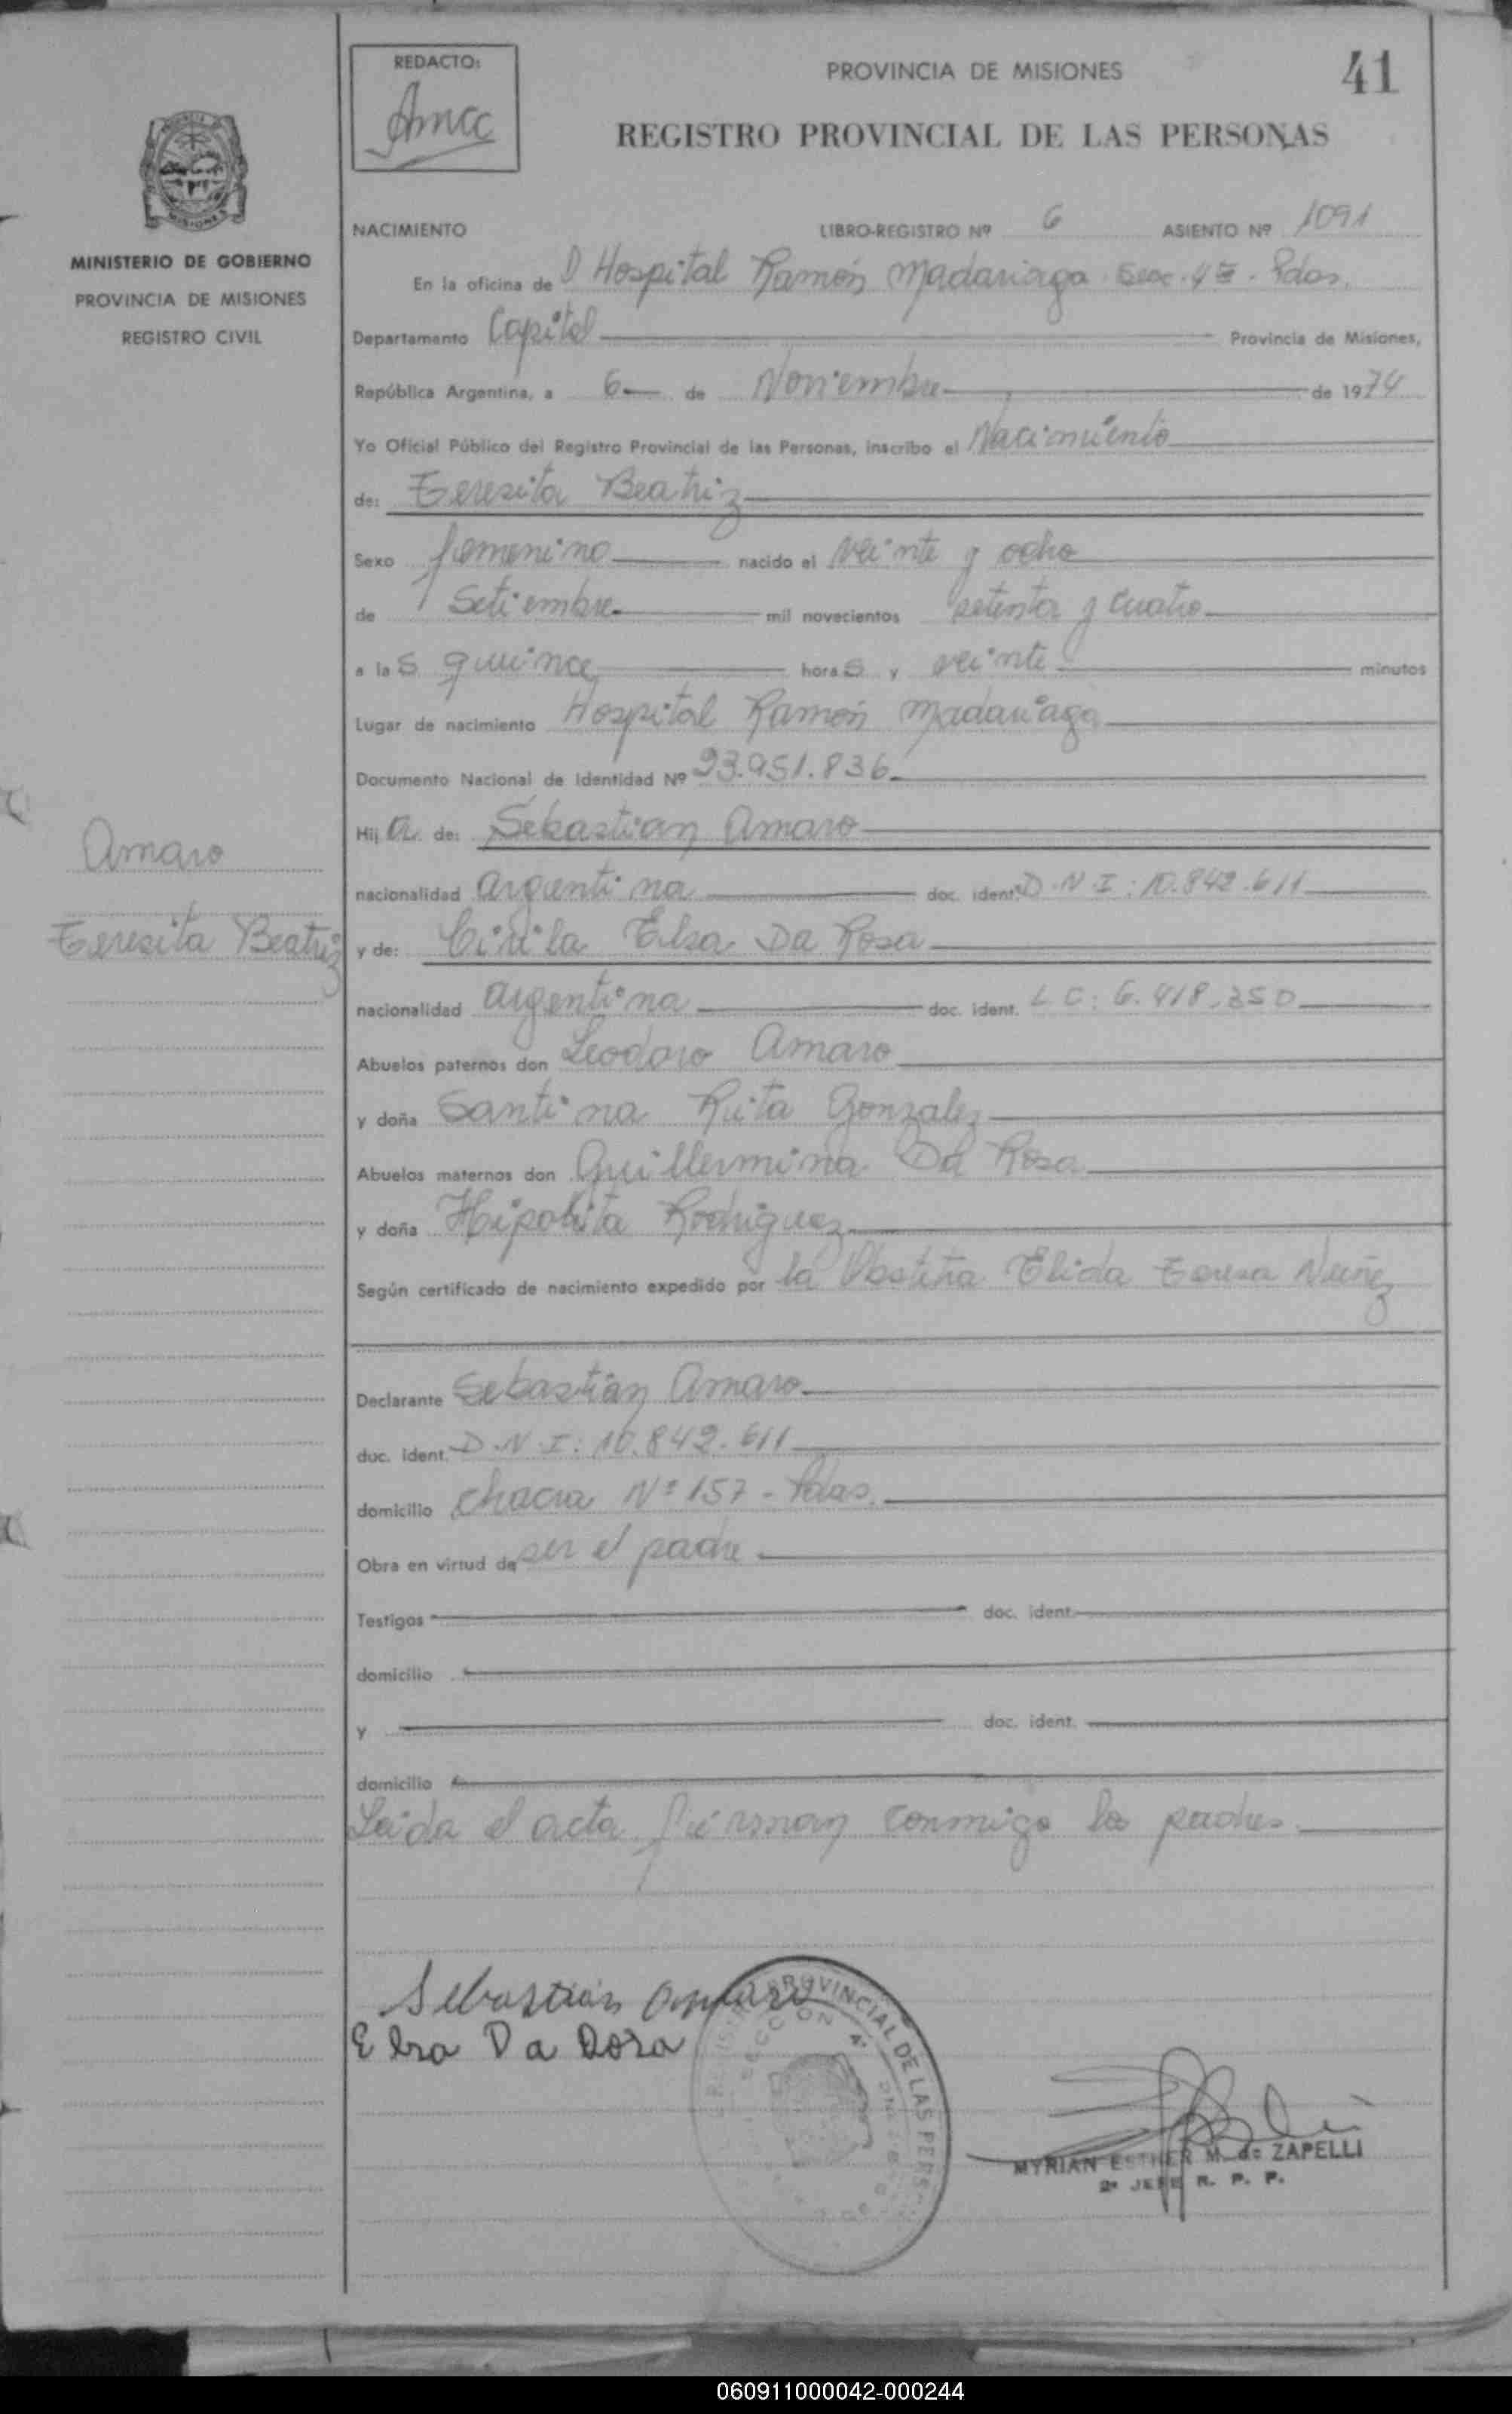 REDACTO:
Amcc
PROVINCIA DE MISIONES
41
REGISTRO PROVINCIAL DE LAS PERSONAS
MISIONES
MINISTERIO DE GOBIERNO
PROVINCIA DE MISIONES
REGISTRO CIVIL
NACIMIENTO LIBRO-REGISTRO Nº 6 ASIENTO Nº 1091
En la oficina de D Hospital Ramón Madariaga Secc. 4ª - Pdas.
Departamento Capital Provincia de Misiones,
República Argentina, a 6 de Noviembre de 1974
Yo Oficial Público del Registro Provincial de las Personas, inscribo el Nacimiento
de: Teresita Beatriz
Sexo femenino nacido el veinte y ocho
de Setiembre mil novecientos setenta y cuatro
a las quince horas y veinte minutos
Lugar de nacimiento Hospital Ramón Madariaga
Documento Nacional de Identidad Nº 23.951.836
Hija de: Sebastian Amaro
Amaro
Teresita Beatriz
nacionalidad argentina doc. ident. D.N.I: 10.842.611
y de: Cirila Elsa Da Rosa
nacionalidad argentina doc. ident. L C: 6.418.350
Abuelos paternos don Leodoro Amaro
y doña Santina Rita Gonzalez
Abuelos maternos don Guillermina Da Rosa
y doña Hipolita Rodriguez
Según certificado de nacimiento expedido por la Obstetra Elida Teresa Nuñez
Declarante Sebastián Amaro
doc. ident. D.N.I: 10.842.611
domicilio Chacra Nº 157 - Pdas.
Obra en virtud de ser el padre
Testigos doc. ident.
domicilio
y doc. ident.
domicilio
Leida el acta firman conmigo los padres
Sebastián Amaro
Elsa Da Rosa
PROVINCIAL DE LAS PERS
SECCION 4ª
MYRIAN ESTHER M. de ZAPELLI
2º JEFE R. P. P.
060911000042-000244